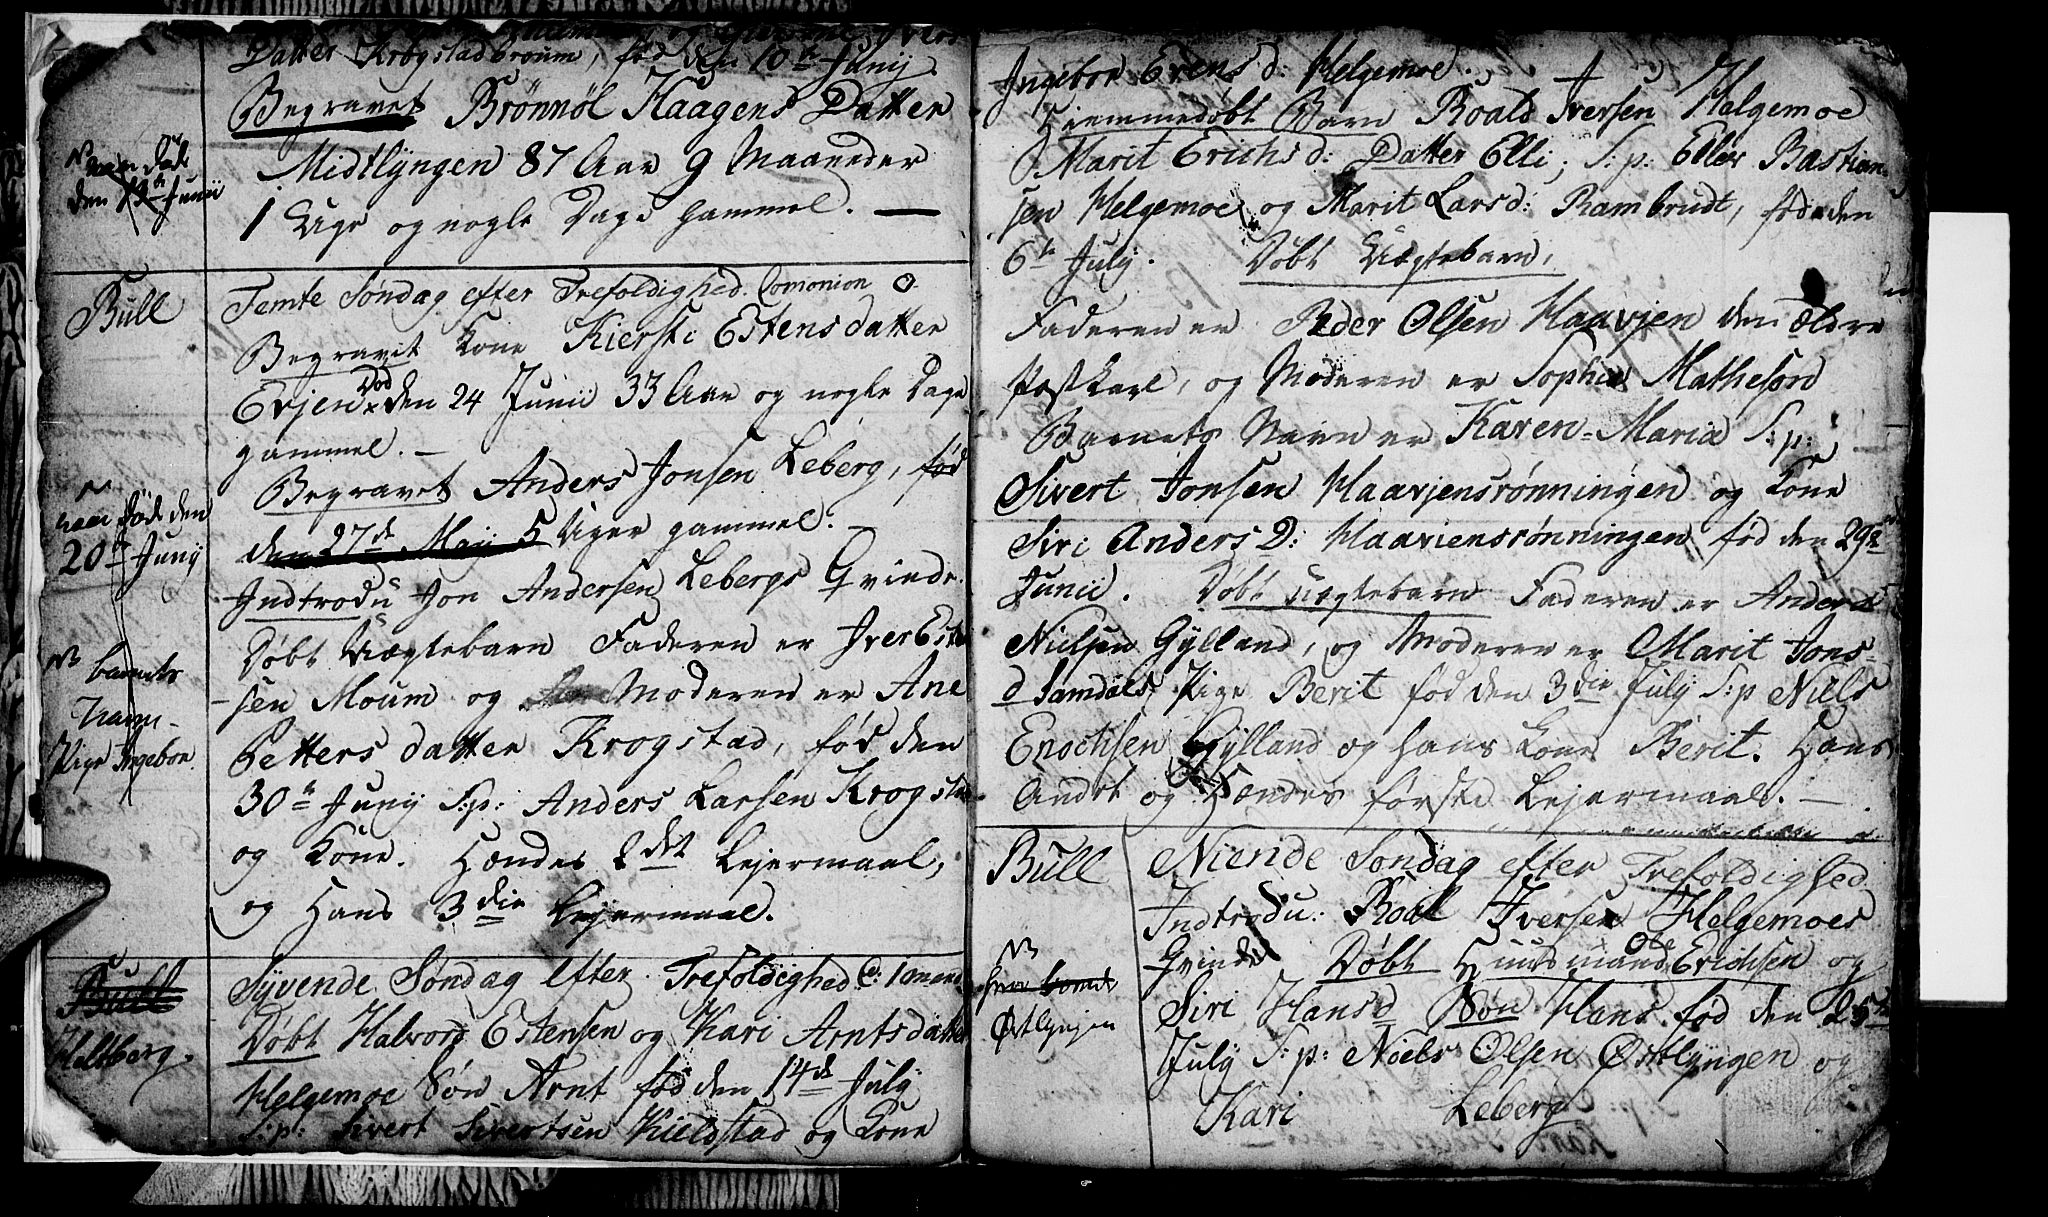 Datter Krogstadbroum, fød den 10de Junij
Begravet Brønnøl Haagens Datter
Midtlyngen 87 Aar 9 Maaneder
1 Uge og nogle Dage gammel. —
NB
den 19de Junii
Bull
Femte Søndag efter Trefoldighed. Comonion O.
Begravet Kone Kiersti Estensdatter
Evjen Død den 24 Junii 33 Aar og nogle Dage
gammel. —
Begravet Anders Jonsen Leberg, fød
den 27de Maij 5 Uger gammel. —
NB
død den
20de Junij
Indtrodu Jon Andersen Lebergs Qvinde.
Døbt Uægtebarn Faderen er Iver Esten
-sen Moum og Moderen er Ane
Petters datter Krogstad, fød den
30te Junij S:p: Anders Larsen Krogstad
og Kone. Hændes 2det Lejermaal,
og Hans 3die Lejermaal.
NB barnets
Navn
Pige Ingebor
Bull
Heltberg.
Syvende Søndag efter Trefoldighed C:
Døbt Halvord Estensen og Kari Arntsdatter
Helgemoe Søn Arnt fød den 14de July
S:p: Sivert Sivertsen Kieldstad og Kone
Ingebor Evensd: Helgemoe.
Hiemmedøbt Barn Roald Iversen Helgemoe
Marit Erichsd: Datter Elli; S:p: Eller Bastian-
sen Helgemoe og Marit Larsd: Rambrudt, føde den
6te July. Døbt Uægtebarn,
Faderen er Peder Olsen Haavjen den ældre
Postkarl, og Moderen er Sophia Matheson
Barnets Navn er Karen-Maria S:p:
Sivert Jonsen Haavjensrønningen og Kone
Siri Anders D: Haavjensrønningen fød den 29de
Junii. Døbt Uægtebarn Faderen er Anders
Nielsen Gylland, og Moderen er Marit Jons-
d Samdals, Pige Berit fød den 3die July S:p Niels
Enochsen Gylland og hans Kone Berit. Hans
Andet og Hændes første Lejermaal. —
Bull
Niende Søndag efter Trefoldighed
Indtrodu: Roal Iversen Helgemoes
Qvinde Døbt Huusmand Ole Erichsen og
Siri Hansd Søn Hans fød den 25de
July S:p: Niels Olsen Østlyngen og
Kari Leberg
NB
Østlyngen